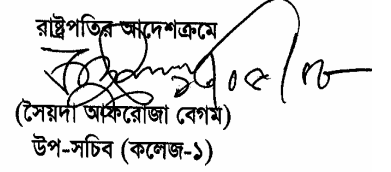 রাষ্ট্রপতির আদেশক্রমে
(সৈয়দা আফরোজা বেগম)
উপ-সচিব (কলেজ-১)